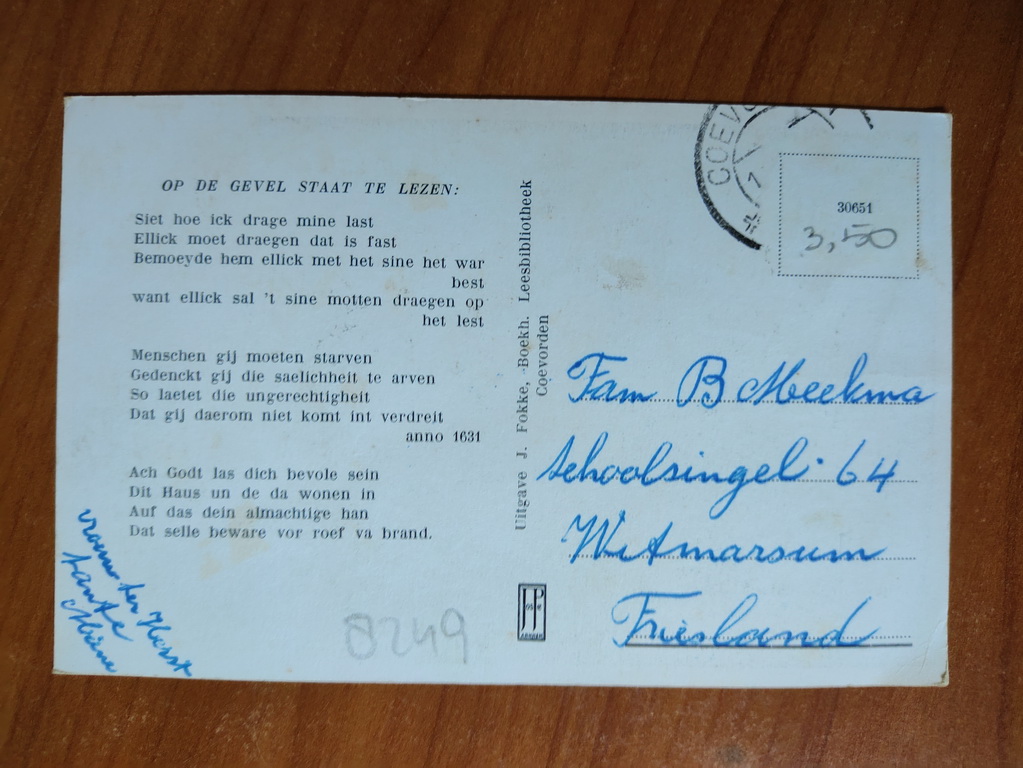 OP DE GEVEL STAAT TE LEZEN:
Siet hoe ick drage mine last
Ellick moet draegen dat is fast
Bemoeyde hem ellick met het sine het war
best
want ellick sal 't sine motten draegen op
het lest
Menschen gij moeten starven
Gedenckt gij die saelichheit te arven
So laetet die ungerechtigheit
Dat gij daerom niet komt int verdreit
anno 1631
Ach Godt las dich bevole sein
Dit Haus un de da wonen in
Auf das dein almachtige han
Dat selle beware vor roef va brand.
vrouw ter Horst
tante
8249
Uitgave J. Fokke, Boekh. Leesbibliotheek
Coevorden
JosPé
ARNHEM
COEVO
30651
3,50
Fam B Meekma
Schoolsingel 64
Witmarsum
Friesland